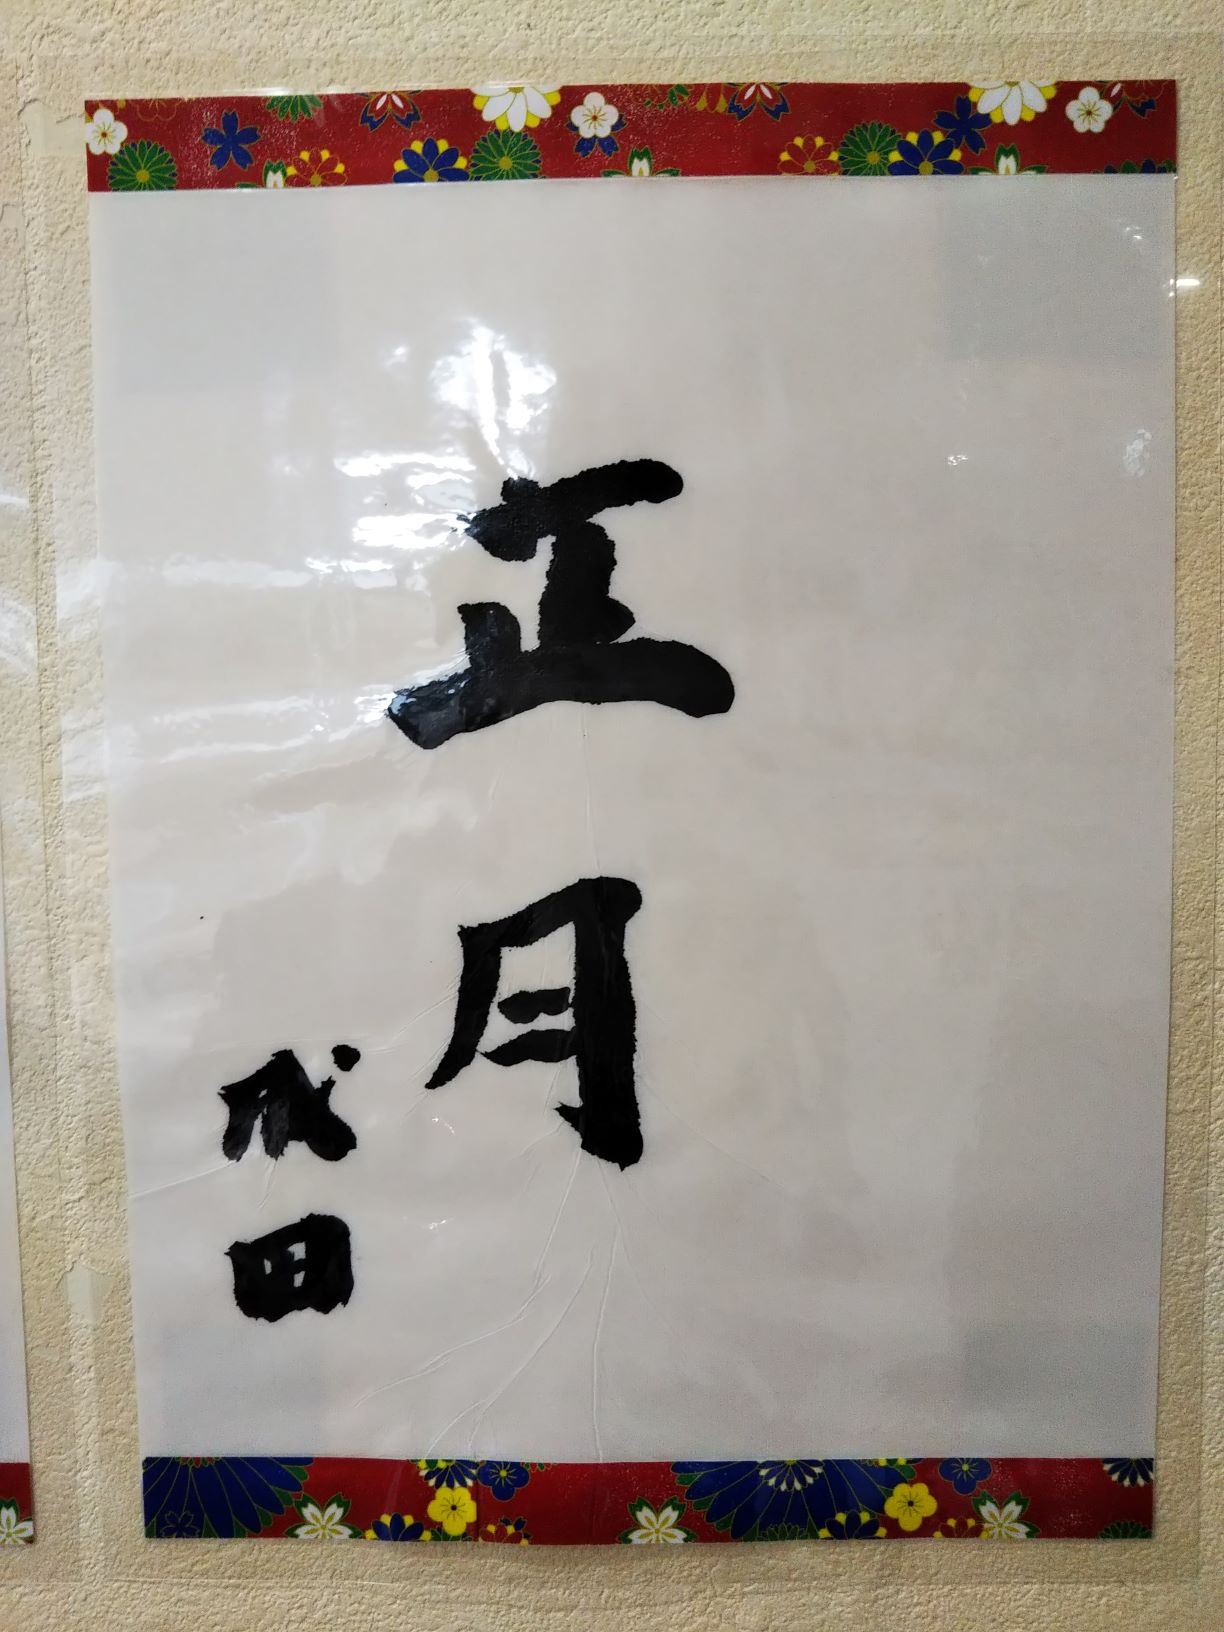 正月
成田